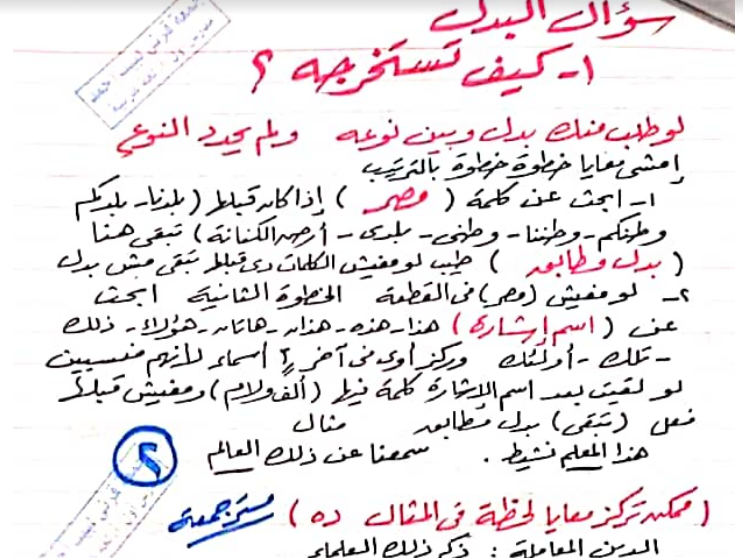 سؤال البدل
١- كيف تستخرجه ؟
لو طلب منك بدل وبين نوعه ولم يحدد النوع
إمشى معايا خطوة خطوة بالترتيب
١- ابحث عن كلمة ( مصر ) إذا كان قبلها ( بلدنا - بلدكم
وطنكم - وطننا - وطنى - بلدى - أرض الكنانة ) تبقى هنا
( بدل مطابق ) طيب لو مفيش الكلمات دى قبلها تبقى مش بدل
٢- لو مفيش (مصر) فى القطعة الخطوة الثانية ابحث
عن ( اسم إشارى ) هذا - هذه - هذان - هاتان - هؤلاء - ذلك
- تلك - أولئك وركز أوى فى آخر ٣ أسماء لأنهم منسيين
لو لقيت بعد اسم الإشارة كلمة فيها (ألف ولام) ومفيش قبلها
فعل (تبقى) بدل مطابق مثال
هذا المعلم نشيط . سمعنا عن ذلك العالم
٢
( ممكن تركز معايا لحظة فى المثال ده )
الدين المعاملة : ذكر ذلك العلماء